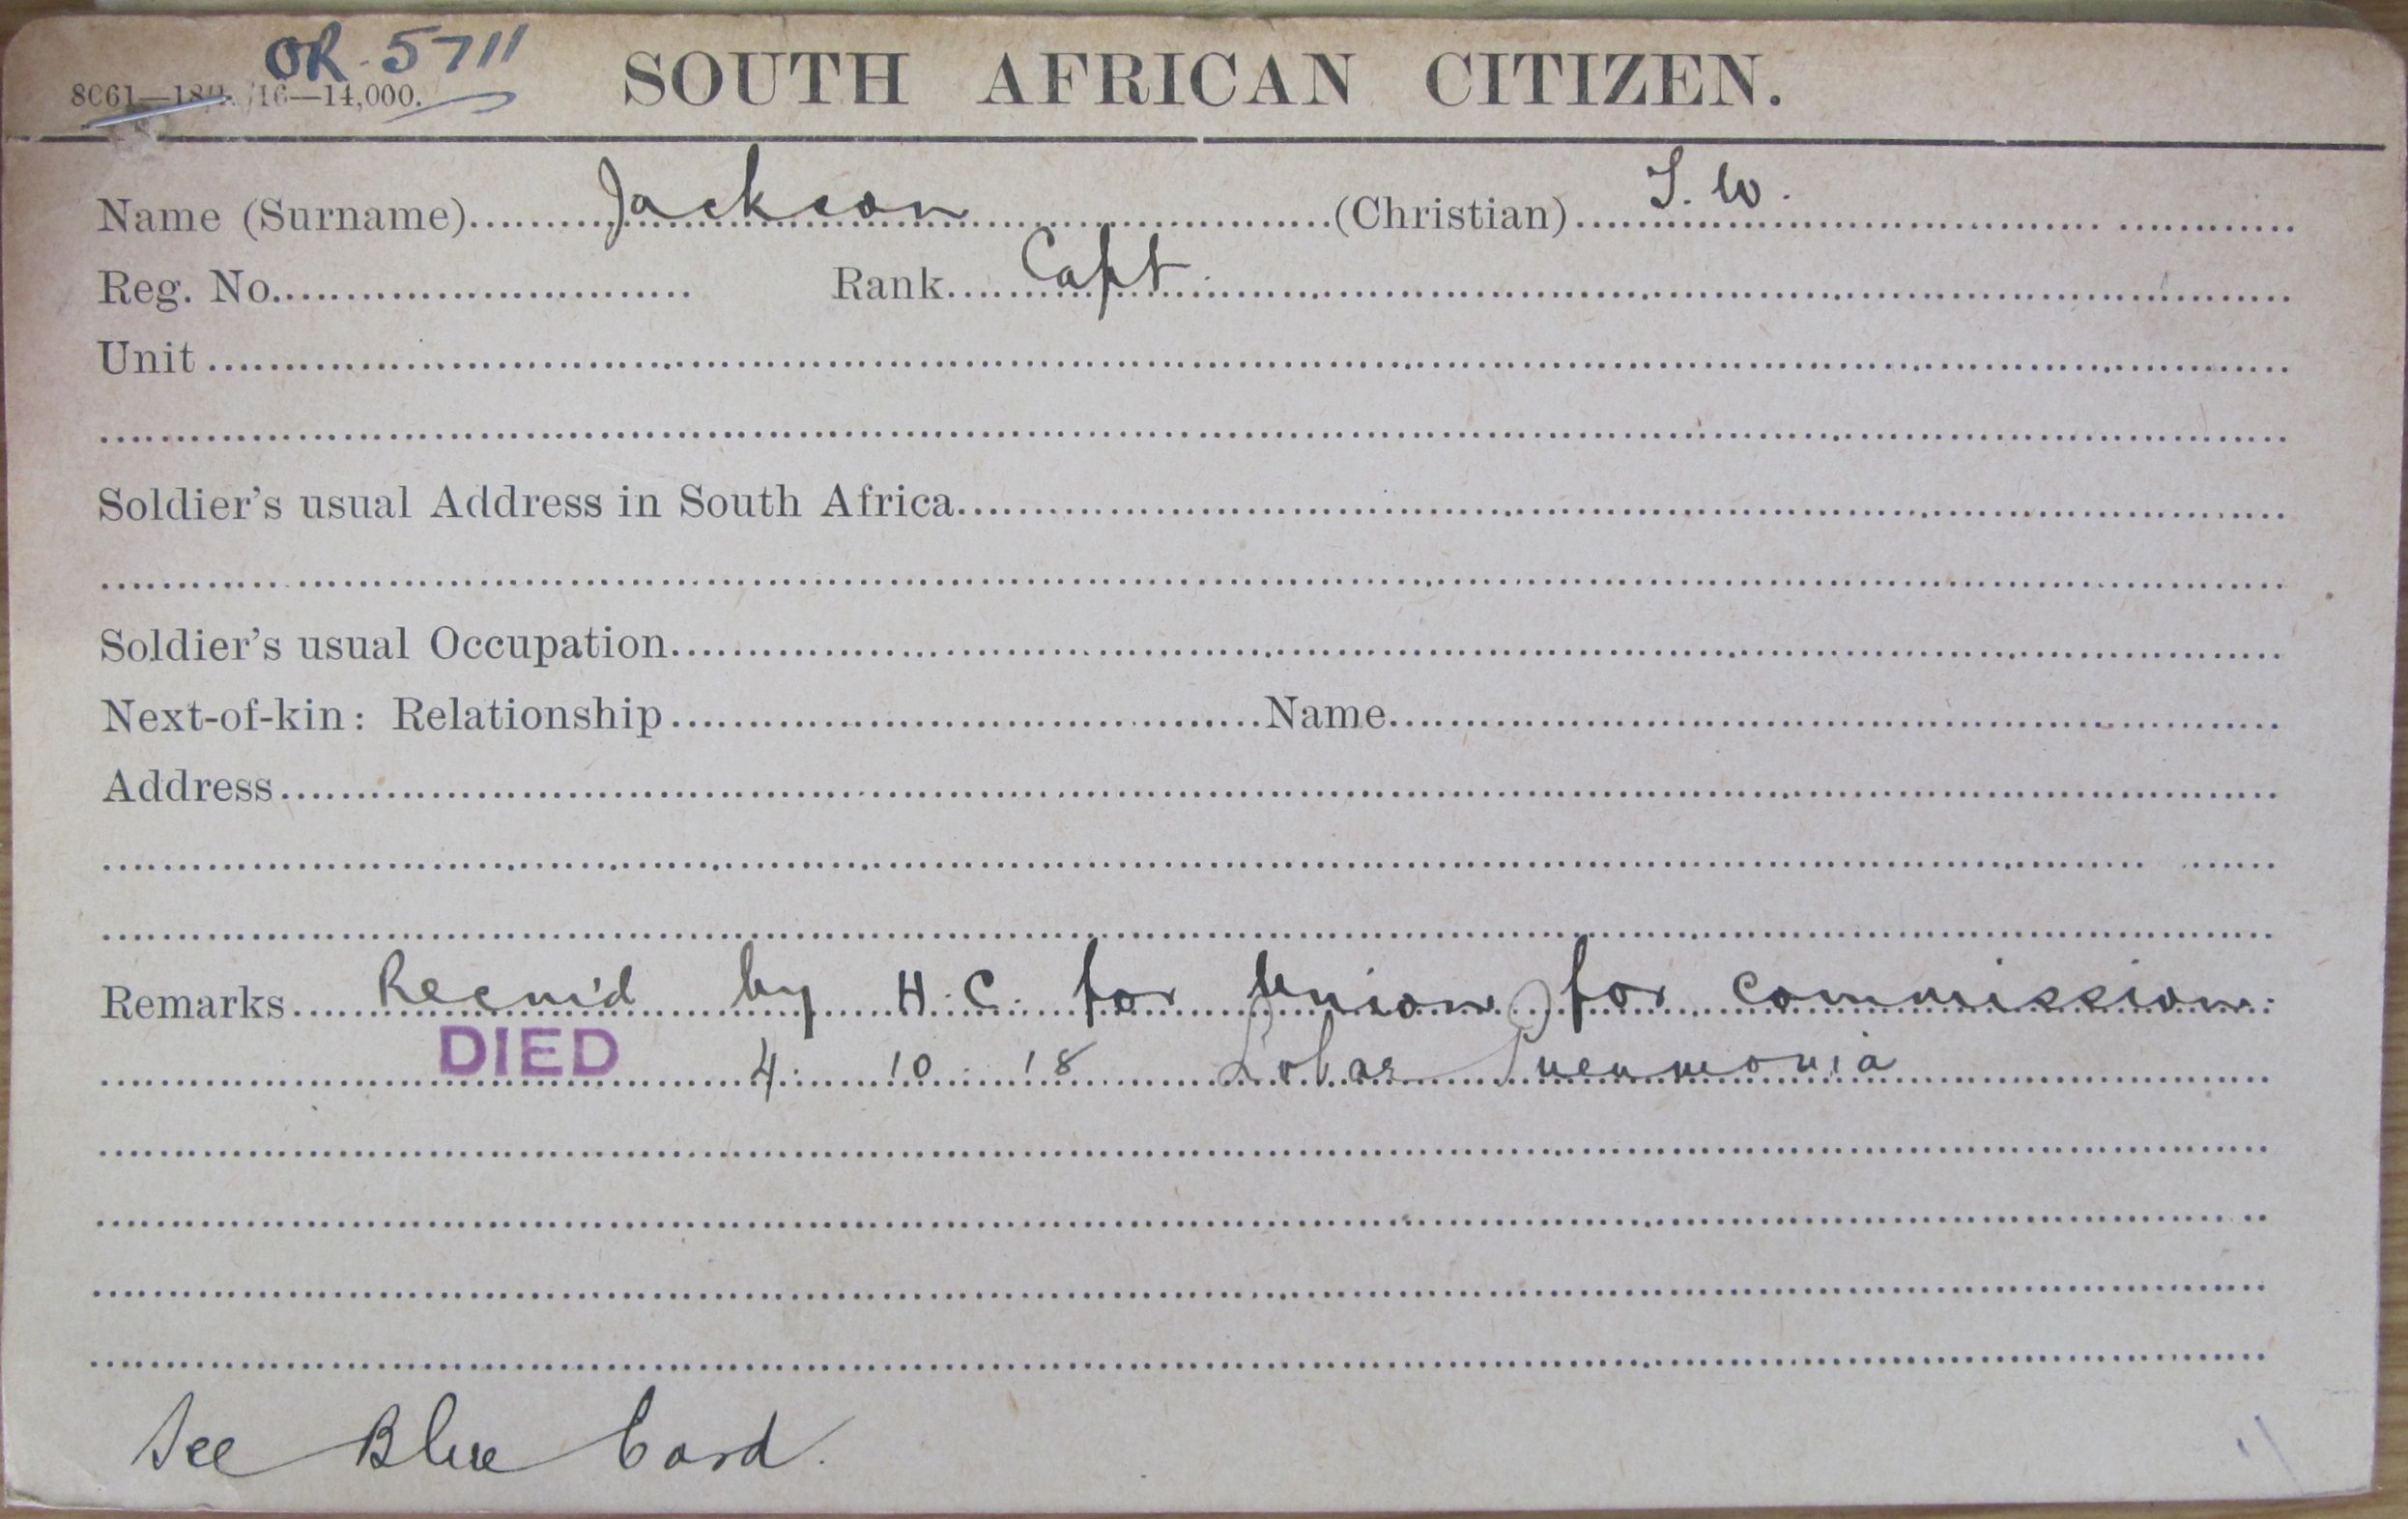 OR. 5711
8061—18/9/16—14,000.
SOUTH AFRICAN CITIZEN.
Name (Surname) Jackson (Christian) T. W.
Reg. No. Rank Capt.
Unit
Soldier's usual Address in South Africa
Soldier's usual Occupation
Next-of-kin: Relationship Name
Address
Remarks Recm'd by H.C. for Union for commission.
DIED 4. 10. 18 Lobar Pneumonia
See Blue Card.